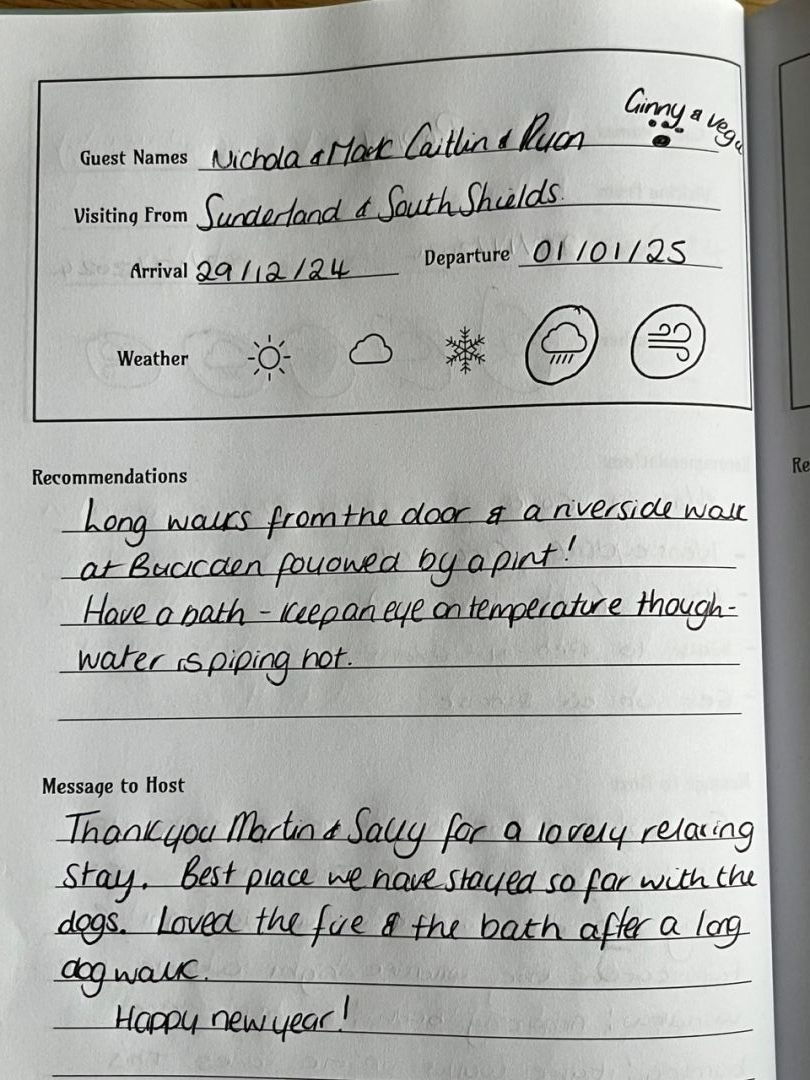 Ginny & Vega
Guest Names Nichola & Mark Caitlin & Ryan
Visiting From Sunderland & South Shields.
Arrival 29/12/24 Departure 01/01/25
Weather
Recommendations
Long walks from the door & a riverside walk
at Buckden followed by a pint!
Have a bath - keep an eye on temperature though -
water is piping hot.
Message to Host
Thankyou Martin & Sally for a lovely relaxing
stay. Best place we have stayed so far with the
dogs. Loved the fire & the bath after a long
dog walk.
Happy new year!
Re